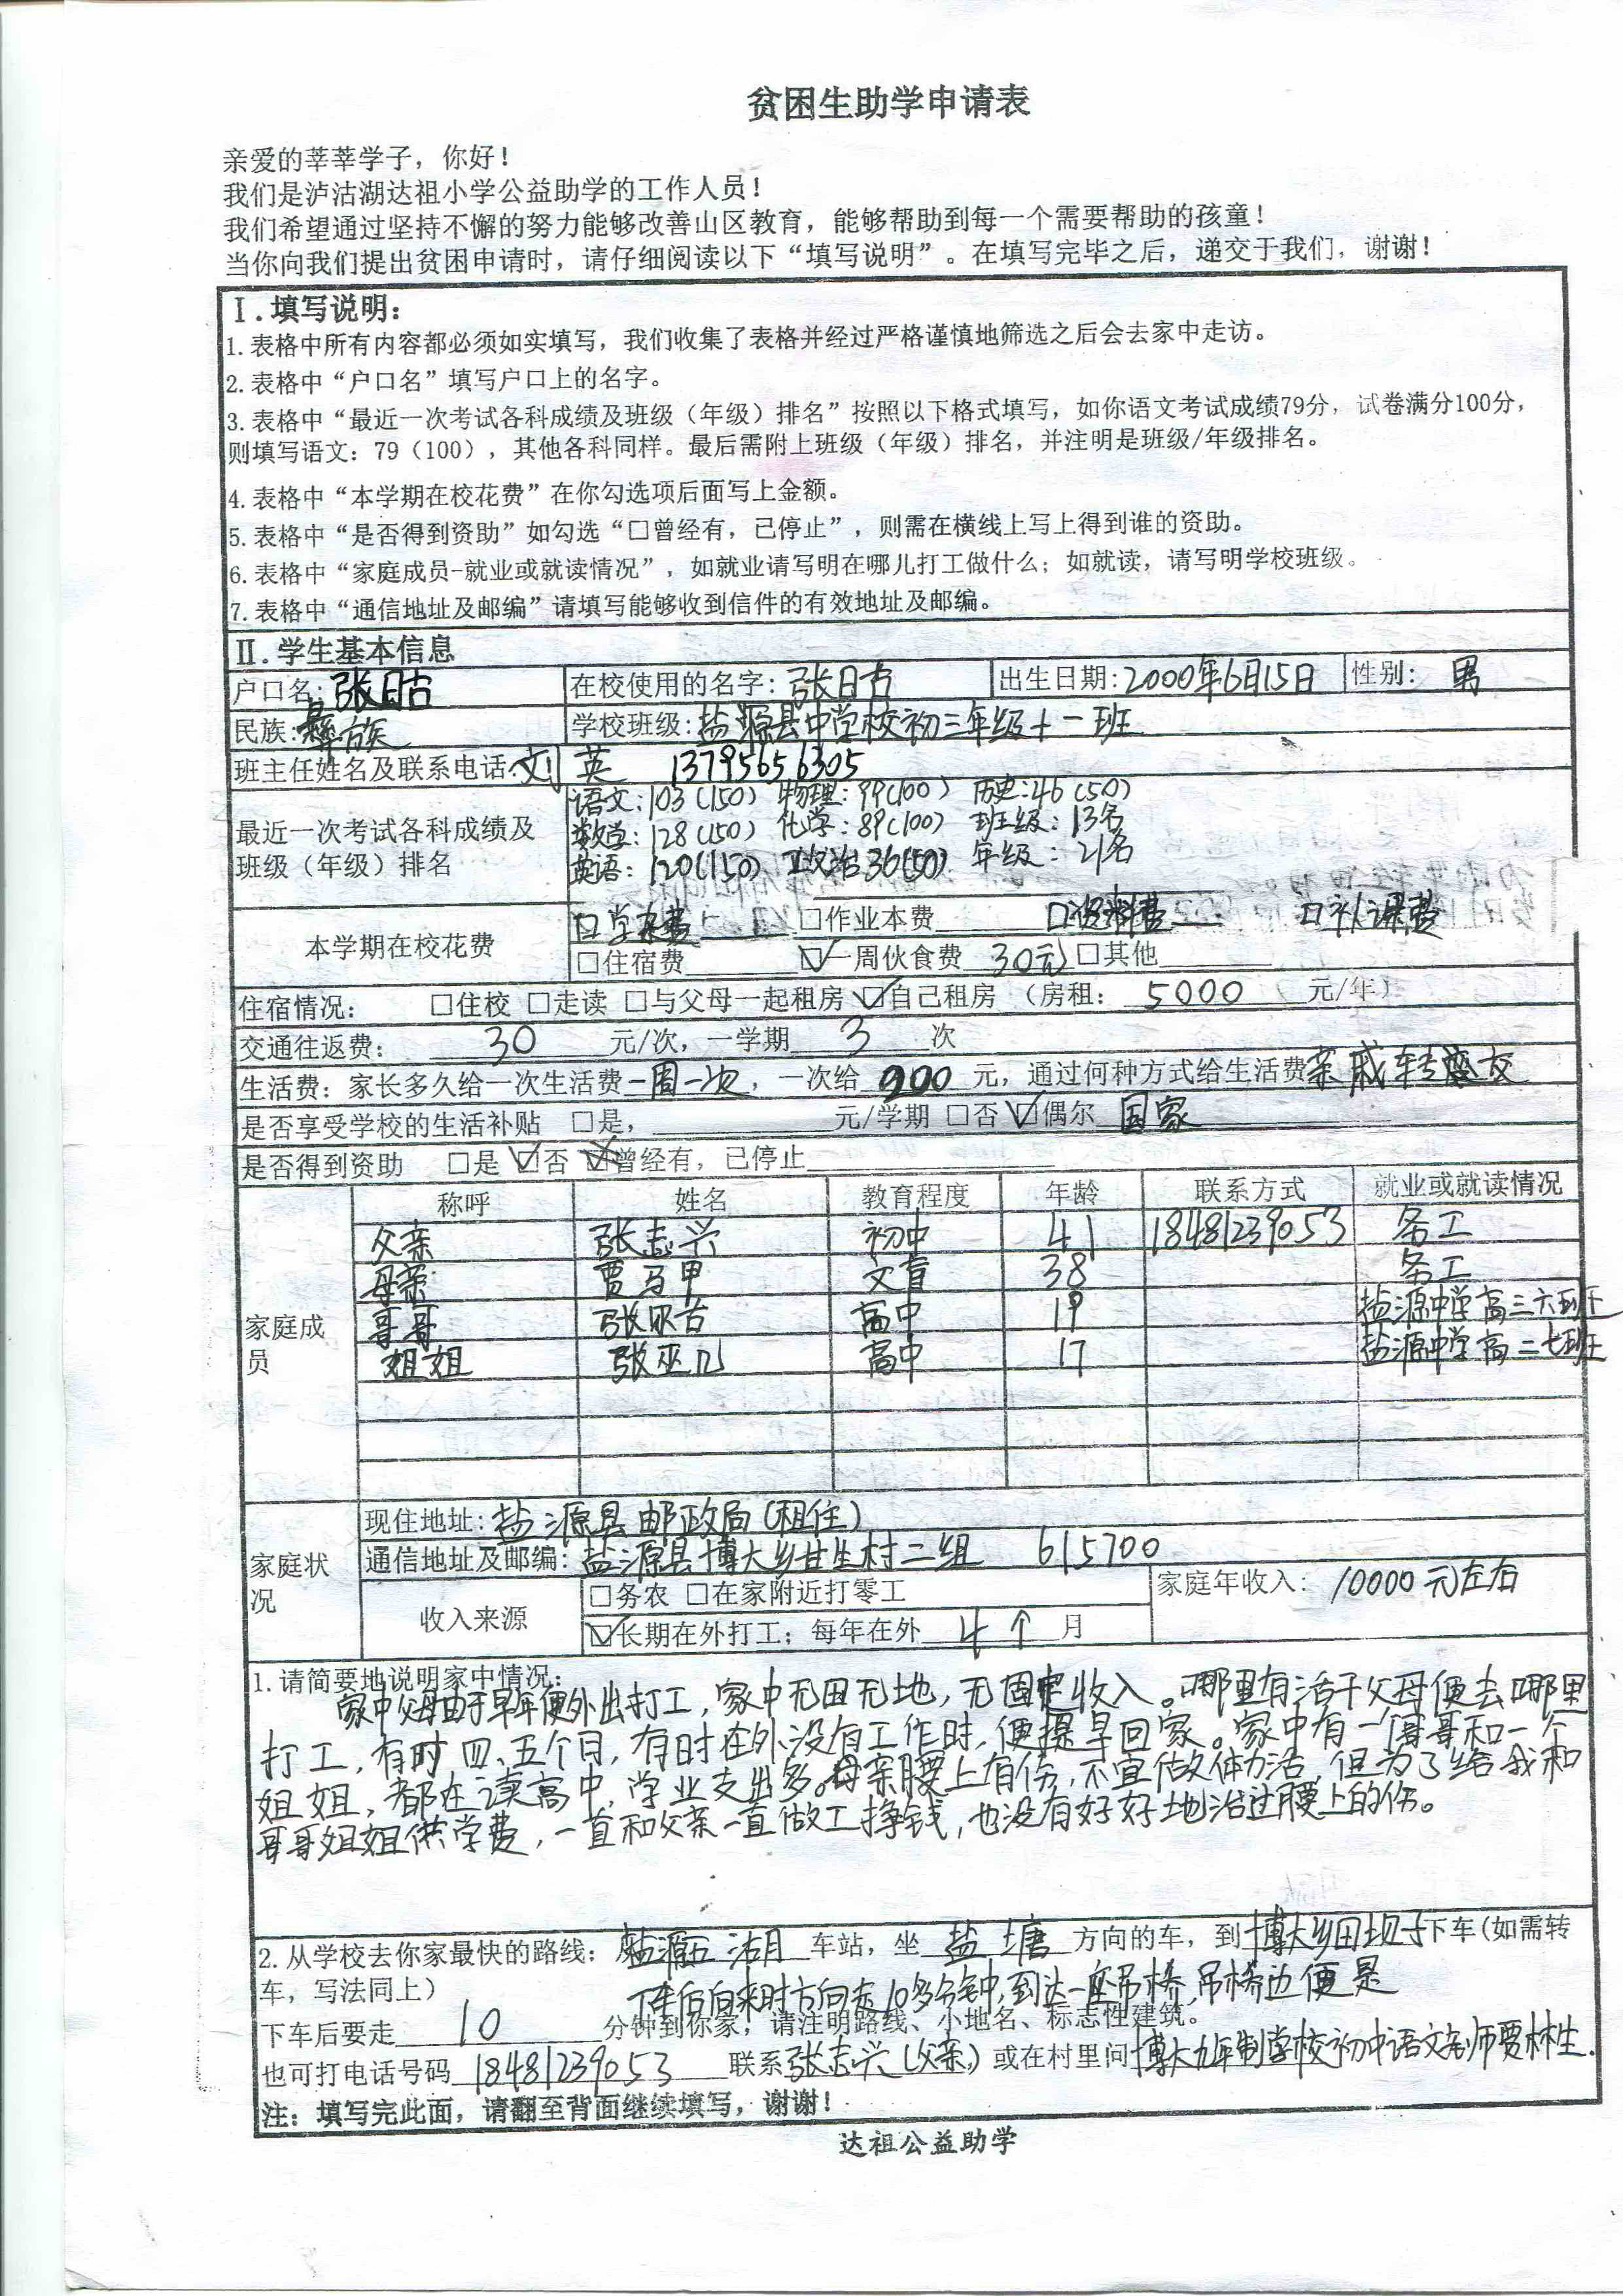 贫困生助学申请表
亲爱的莘莘学子，你好！
我们是泸沽湖达祖小学公益助学的工作人员！
我们希望通过坚持不懈的努力能够改善山区教育，能够帮助到每一个需要帮助的孩童！
当你向我们提出贫困申请时，请仔细阅读以下“填写说明”。在填写完毕之后，递交于我们，谢谢！
Ⅰ.填写说明：
1.表格中所有内容都必须如实填写，我们收集了表格并经过严格谨慎地筛选之后会去家中走访。
2.表格中“户口名”填写户口上的名字。
3.表格中“最近一次考试各科成绩及班级（年级）排名”按照以下格式填写，如你语文考试成绩79分，试卷满分100分，
则填写语文：79（100），其他各科同样。最后需附上班级（年级）排名，并注明是班级/年级排名。
4.表格中“本学期在校花费”在你勾选项后面写上金额。
5.表格中“是否得到资助”如勾选“□曾经有，已停止”，则需在横线上写上得到谁的资助。
6.表格中“家庭成员-就业或就读情况”，如就业请写明在哪儿打工做什么；如就读，请写明学校班级。
7.表格中“通信地址及邮编”请填写能够收到信件的有效地址及邮编。
Ⅱ.学生基本信息
户口名：张日古 在校使用的名字：张日古 出生日期：2000年6月15日 性别： 男
民族：彝族 学校班级：盐源县中学校初三年级十一班
班主任姓名及联系电话：刘英 13795656305
语文：103（150） 物理：99（100） 历史：46（50）
最近一次考试各科成绩及 数学：128（150） 化学：89（100） 班级：13名
班级（年级）排名 英语：120（150） 政治36（50） 年级：21名
本学期在校花费 □学杂费 □作业本费 □资料费 □补课费
□住宿费 ☑一周伙食费 30元 □其他
住宿情况： □住校 □走读 □与父母一起租房 ☑自己租房 （房租： 5000 元/年）
交通往返费： 30 元/次，一学期 3 次
生活费：家长多久给一次生活费一周一次，一次给 200 元，通过何种方式给生活费亲戚转交
是否享受学校的生活补贴 □是， 元/学期 □否 ☑偶尔 国家
是否得到资助 □是 ☑否 □曾经有，已停止
称呼 姓名 教育程度 年龄 联系方式 就业或就读情况
父亲 张志兴 初中 41 18481239053 务工
母亲 贾马甲 文盲 38 务工
哥哥 高中 19 盐源中学高三六班
家庭成员 姐姐 张巫 高中 17 盐源中学高二七班
现住地址：盐源县邮政局（租住）
家庭状况 通信地址及邮编：盐源县博大乡甘生村二组 615700
收入来源 □务农 □在家附近打零工 家庭年收入：10000元左右
☑长期在外打工；每年在外 4个 月
1.请简要地说明家中情况：
家中父母由于早年便外出打工，家中无田无地，无固定收入。哪里有活干父母便去哪里
打工，有时四、五个月，有时在外没有工作时，便提早回家。家中有一个哥哥和一个
姐姐，都在读高中，学业支出多。母亲腰上有伤，不宜做体力活，但为了给我和
哥哥姐姐供学费，一直和父亲一直做工挣钱，也没有好好地治过腰上的伤。
2.从学校去你家最快的路线：盐源五湖 车站，坐 盐塘 方向的车，到博大乡田坝子下车（如需转
车，写法同上） 下车后向来时方向走10多分钟，到达一座吊桥，吊桥边便是
下车后要走 10 分钟到你家，请注明路线、小地名、标志性建筑。
也可打电话号码 18481239053 联系张志兴（父亲） 或在村里问博大九年制学校初中语文老师贾林生.
注：填写完此面，请翻至背面继续填写，谢谢！
达祖公益助学